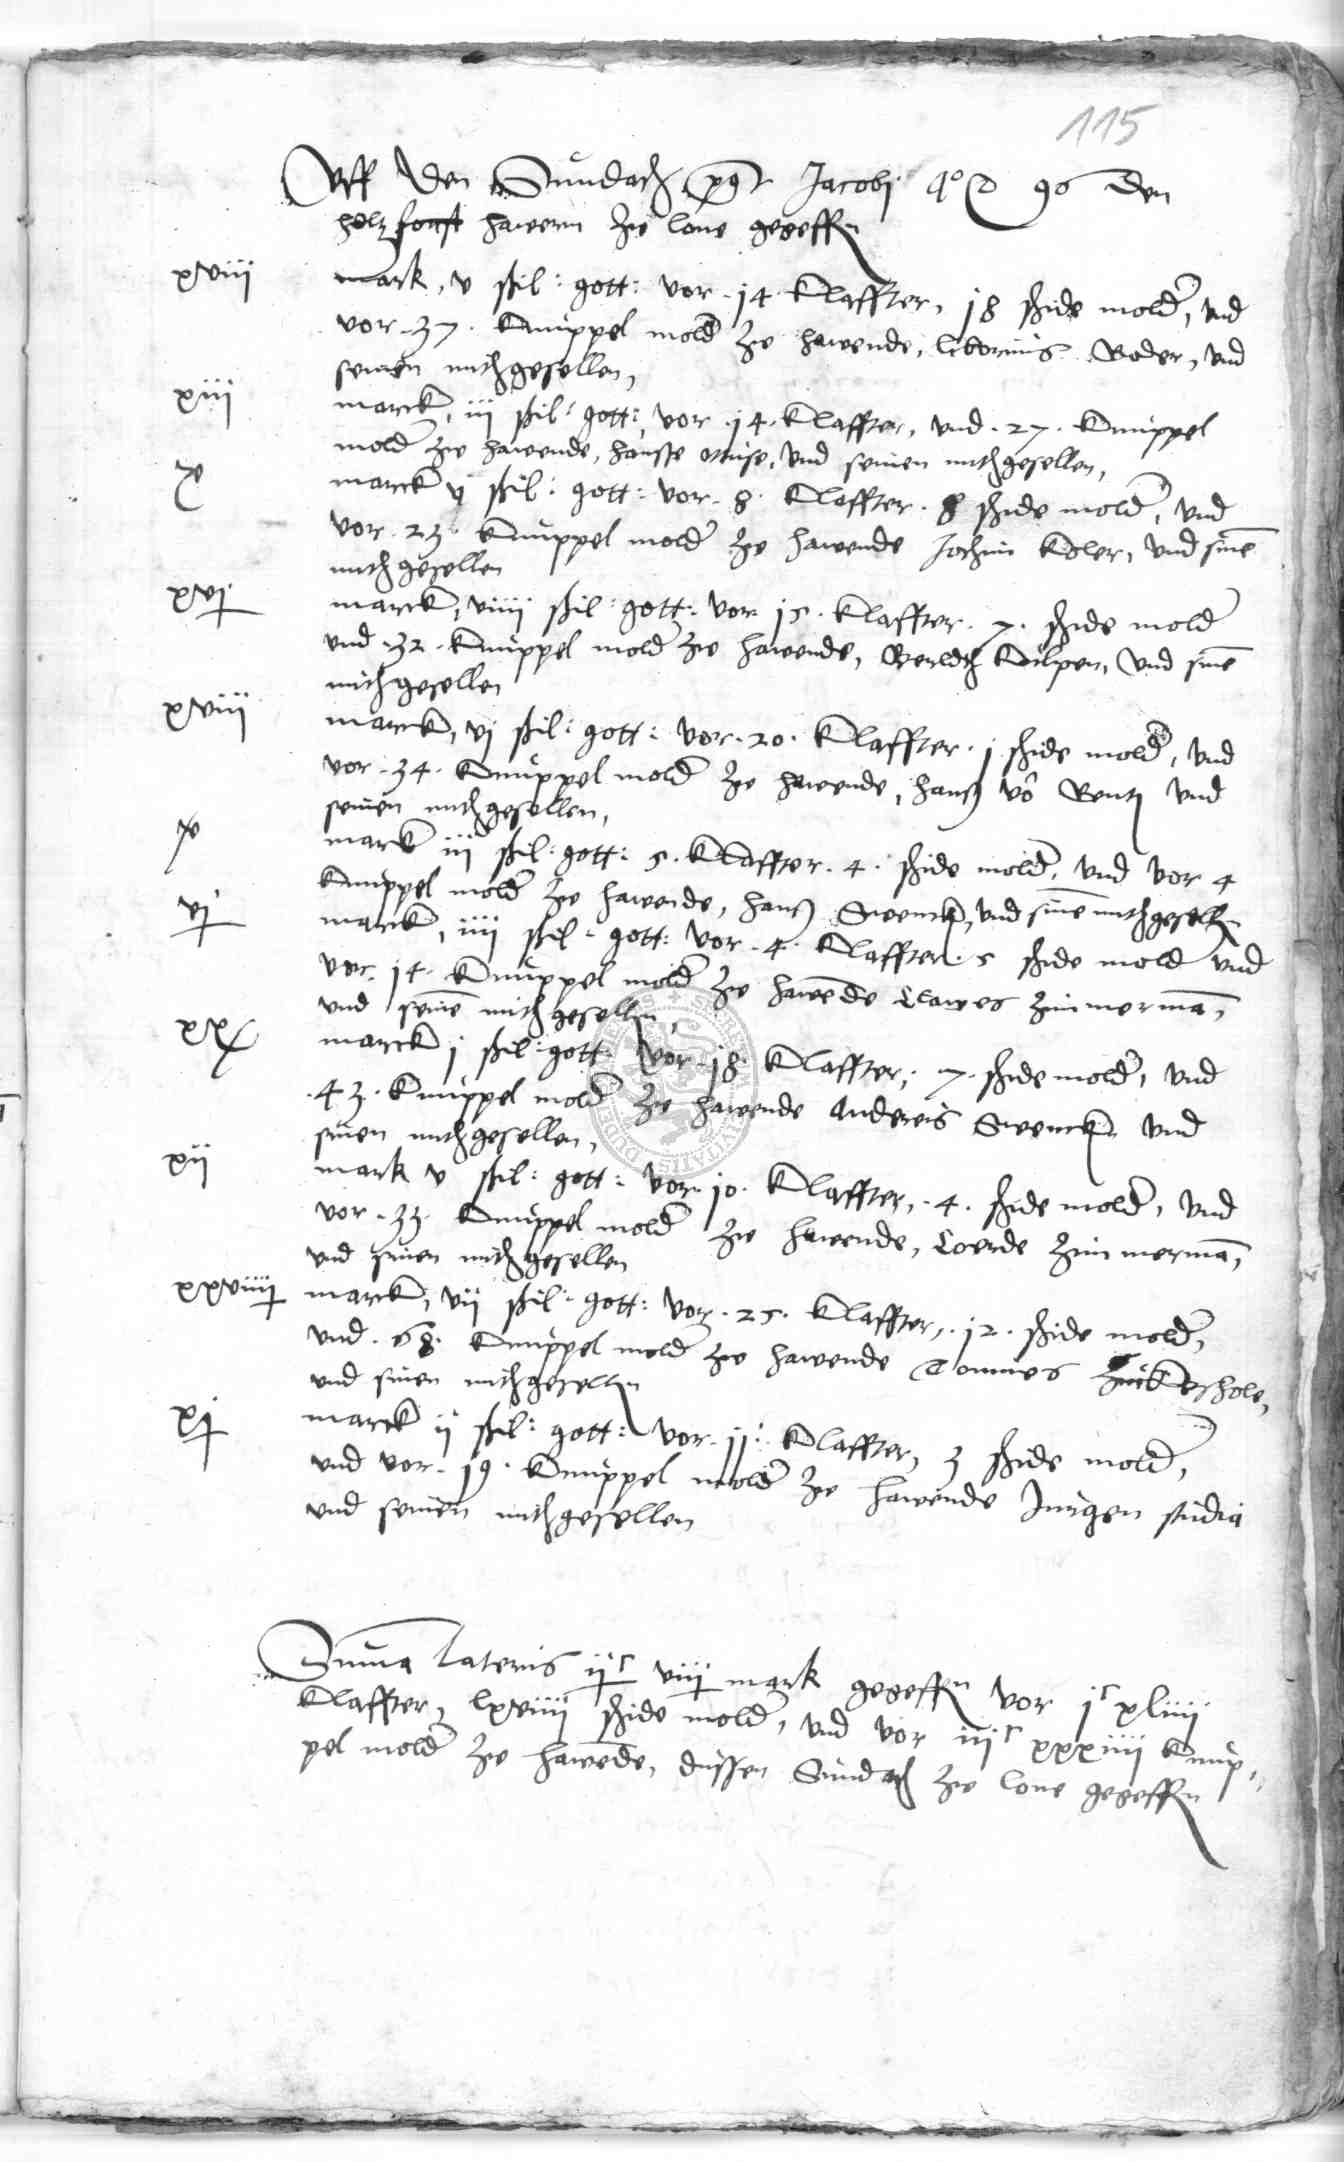 115
Vff den Sundach pgt Jacobi aº 96 den
holtz hawern zw lone gegeffn
xviii mark, v ßil: gott: vor 14 Klaffter, 18 shide mold, vnd
vor 37. Knuppel mold zw hawende, liborius Roder, vnd
seinen mithgesellen,
xiii marck, iii ßil: gott: vor 14. Klaffter, vnd 27. Knuppel
mold zw hawende, Hansse kruse, vnd seinen mithgesellen,
x marck ii ßil: gott: vor 8. Klaffter. 8 shide mold, vnd
vor 23. Knuppel mold zw hawende Jochim Koler, vnd sine
mithgesellen
xvi marck, viiii ßil: gott: vor 15. Klaffter. 7. shide mold
vnd 32. Knuppel mold zw hawende, Berldt Kulpen, vnd sine
mithgesellen
xviii marck, vi ßil: gott: vor 20. Klaffter. 1 shide mold, vnd
vor 34. Knuppel mold zw hawende, Hans vo Bentz vnd
seinen mithgesellen,
x mark iii ßil: gott: 5. Klaffter. 4. shide mold, vnd vor 4
Knuppel mold zw hawende, Hans Swencke, vnd sine mithgeselln
vi marck, iiii ßil: gott: vor 4. Klaffter. 5 shide mold vnd
vor 14. Knuppel mold zw hawende Clawes Zimmerma,
vnd seine mithgesellen,
xx marck i ßil: gott: vor 18. Klaffter, 7. shide mold, vnd
43. Knuppel mold zw hawende Andereis Swencken vnd
sinen mithgesellen,
xii mark v ßil: gott: vor 10. Klaffter, 4. shide mold, vnd
vor 33. Knuppel mold zw hawende, Coerde Zimmerma,
vnd sinen mithgesellen
xxviiii marck, vii ßil: gott: vor 25. Klaffter, 12. shide mold,
vnd 68. Knuppel mold zw hawende Tonnies
vnd sinen mithgesellen
xi marck ii ßil: gott: vor 11. Klaffter, 3 shide mold,
vnd vor 19. Knuppel mold zw hawende Jurgen
vnd seinen mithgesellen
Suma lateris iic viii mark gegeffn vor ic xliiii
Klaffter, lxviiii shide mold, vnd vor iiic xxxiiii Knup,,
pel mold zw hawende, dussen Sundach zw lone gegeffn